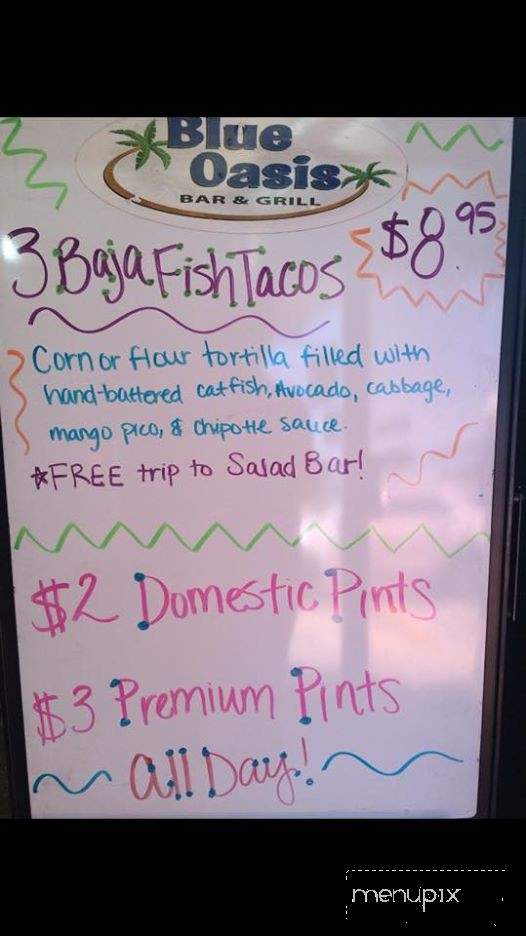 Blue
Oasis
BAR & GRILL
3 Baja Fish Tacos
$8.95
Corn or flour tortilla filled with
hand-battered catfish, Avocado, cabbage,
mango pico, & chipotle sauce.
*FREE trip to Salad Bar!
$2 Domestic Pints
$3 Premium Pints
All Day!
menupix